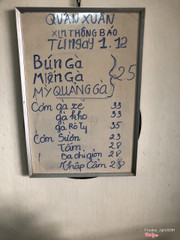 QUÁN XUÂN
XIN THÔNG BÁO
TỪ Ngày 1.12
BÚN GÀ
MIẾN GÀ } 25
MỲ QUẢNG GÀ
Cơm gà xé 33
gà kho 33
gà Rô Ty 35
Cơm Sườn 23
Tấm, 28
Ba chỉ giòn 28
Thập Cẩm 28